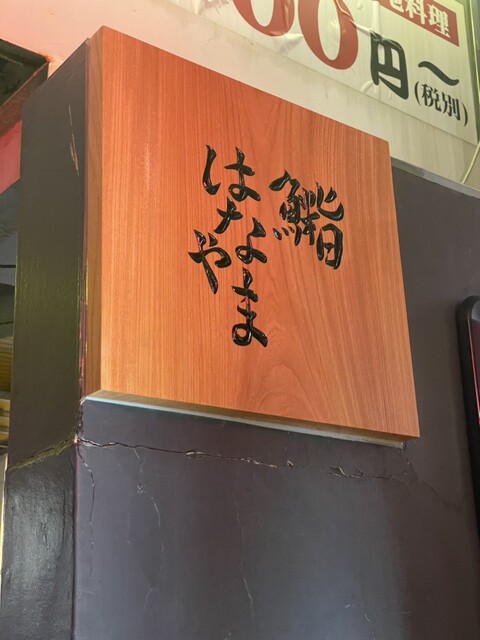 料理
00円～
(税別)
鮨
はなやま